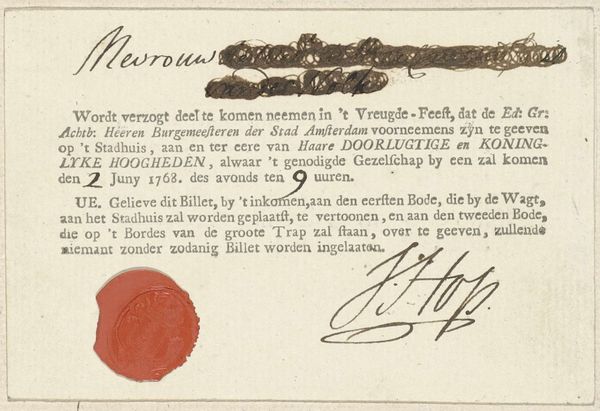 Mevrouw
Wordt verzogt deel te komen neemen in 't Vreugde-Feest, dat de Ed: Gr:
Achtb: Heeren Burgemeesteren der Stad Amsterdam voorneemens zyn te geeven
op 't Stadhuis, aan en ter eere van Haare DOORLUGTIGE en KONING-
LYKE HOOGHEDEN, alwaar 't genodigde Gezelschap by een zal komen
den 2 Juny 1768. des avonds ten 9 uuren.
UE. Gelieve dit Billet, by 't inkomen, aan den eersten Bode, die by de Wagt,
aan het Stadhuis zal worden geplaatst, te vertoonen, en aan den tweeden Bode,
die op 't Bordes van de groote Trap zal staan, over te geeven, zullende
niemant zonder zodanig Billet worden ingelaaten.
J: Hop.